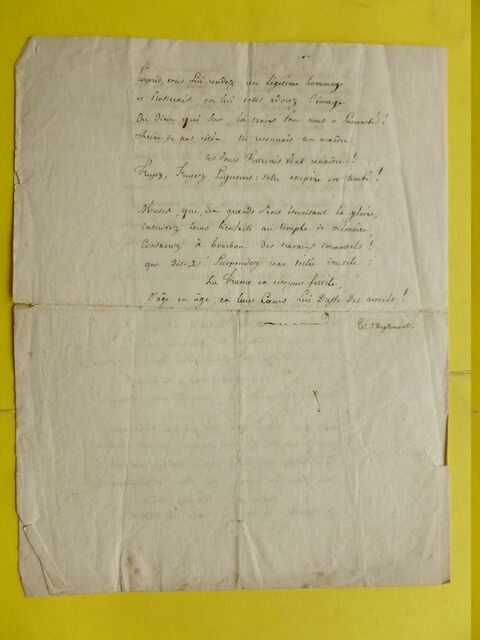 vous lui rendez un légitime hommage
et prosternés, en lui vous adorez l'image
Du Dieu qui sur le trône pour nous a
Reine de nos cités tu reconnais ton maître,
tes jours vont renaître!
Fuyez, Fuyez Ligueurs: votre empire est tombé!
Muses, qui, des grands Rois éternisant la gloire,
inscrivez leurs bienfaits au temple de mémoire,
Consacrez à bourbon des travaux immortels!
que dis-je! Suspendez une veille inutile:
La France en citoyens fertile,
D'âge en âge, en leurs Cœurs lui Dresse Des autels!
Ed. d'Anglemont.